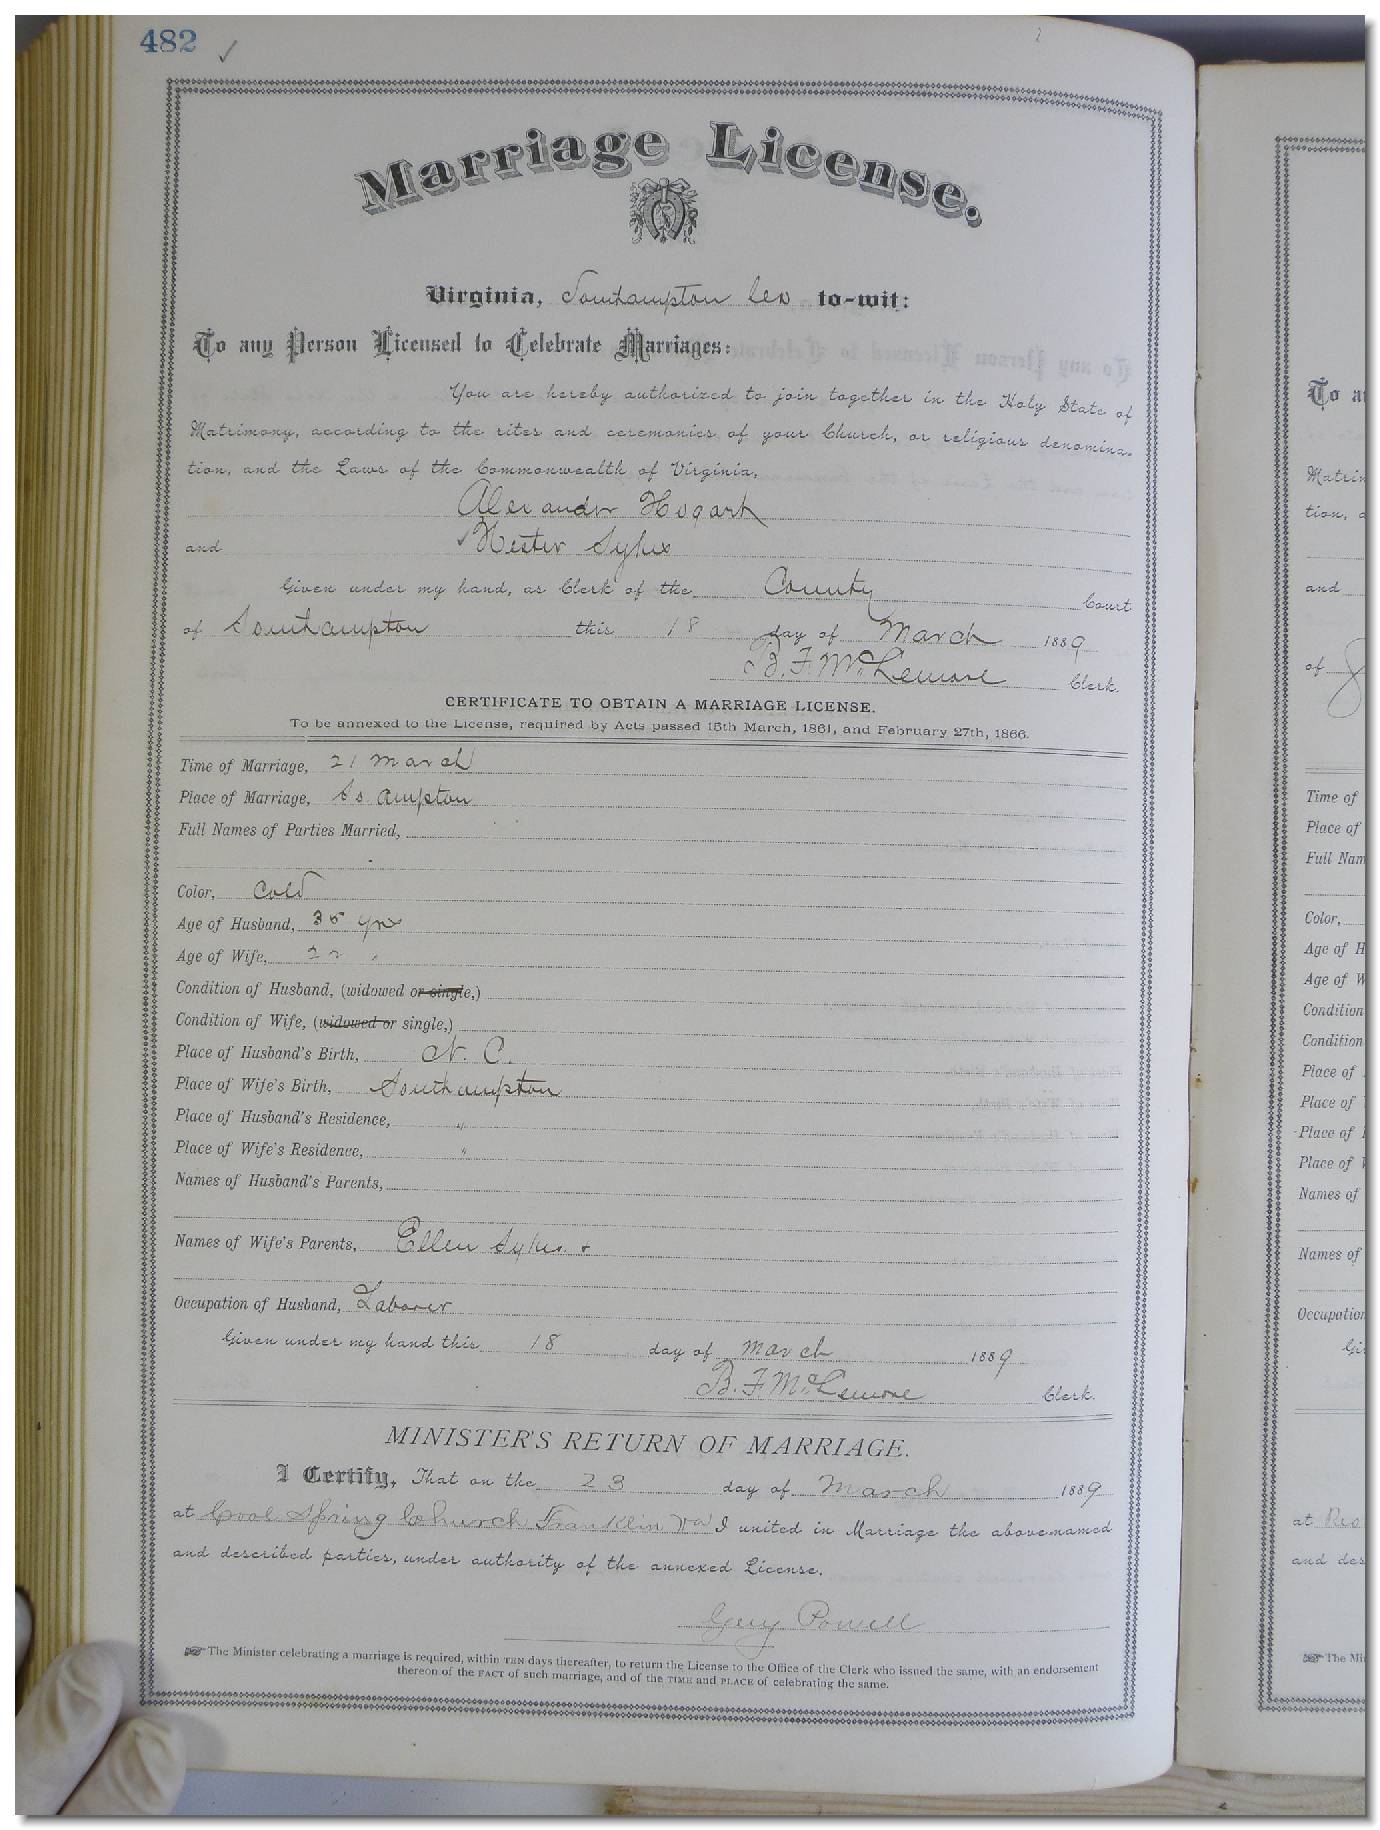 482 ✓
Marriage License.
Virginia, Southampton Co to-wit:
To any Person Licensed to Celebrate Marriages:
You are hereby authorized to join together in the Holy State of
Matrimony, according to the rites and ceremonies of your Church, or religious denomina-
tion, and the Laws of the Commonwealth of Virginia,
Alexander Hogart
and ✓Hester Sykes
Given under my hand, as Clerk of the County Court
of Southampton this 18 day of March 1889
B. F. McLemore Clerk.
CERTIFICATE TO OBTAIN A MARRIAGE LICENSE.
To be annexed to the License, required by Acts passed 15th March, 1861, and February 27th, 1866.
Time of Marriage, 21 March
Place of Marriage, So.ampton
Full Names of Parties Married,
Color, Cold
Age of Husband, 35 yrs
Age of Wife, 22 "
Condition of Husband, (widowed or single,)
Condition of Wife, (widowed or single,)
Place of Husband's Birth, N. C.
Place of Wife's Birth, Southampton
Place of Husband's Residence, "
Place of Wife's Residence, "
Names of Husband's Parents,
Names of Wife's Parents, Ellen Sykes +
Occupation of Husband, Laborer
Given under my hand this 18 day of March 1889
B. F. McLemore Clerk.
MINISTER'S RETURN OF MARRIAGE.
I Certify, That on the 23 day of March 1889
at Cool Spring Church Franklin Va I united in Marriage the above-named
and described parties, under authority of the annexed License.
Powell
☞ The Minister celebrating a marriage is required, within TEN days thereafter, to return the License to the Office of the Clerk who issued the same, with an endorsement
thereon of the FACT of such marriage, and of the TIME and PLACE of celebrating the same.
To a
Matrim
tion, a
and
of
Time of
Place of
Full Nam
Color,
Age of H
Age of W
Condition
Condition
Place of
Place of
Place of
Place of
Names of
Names of
Occupation
Gi
at
and des
☞ The Mi